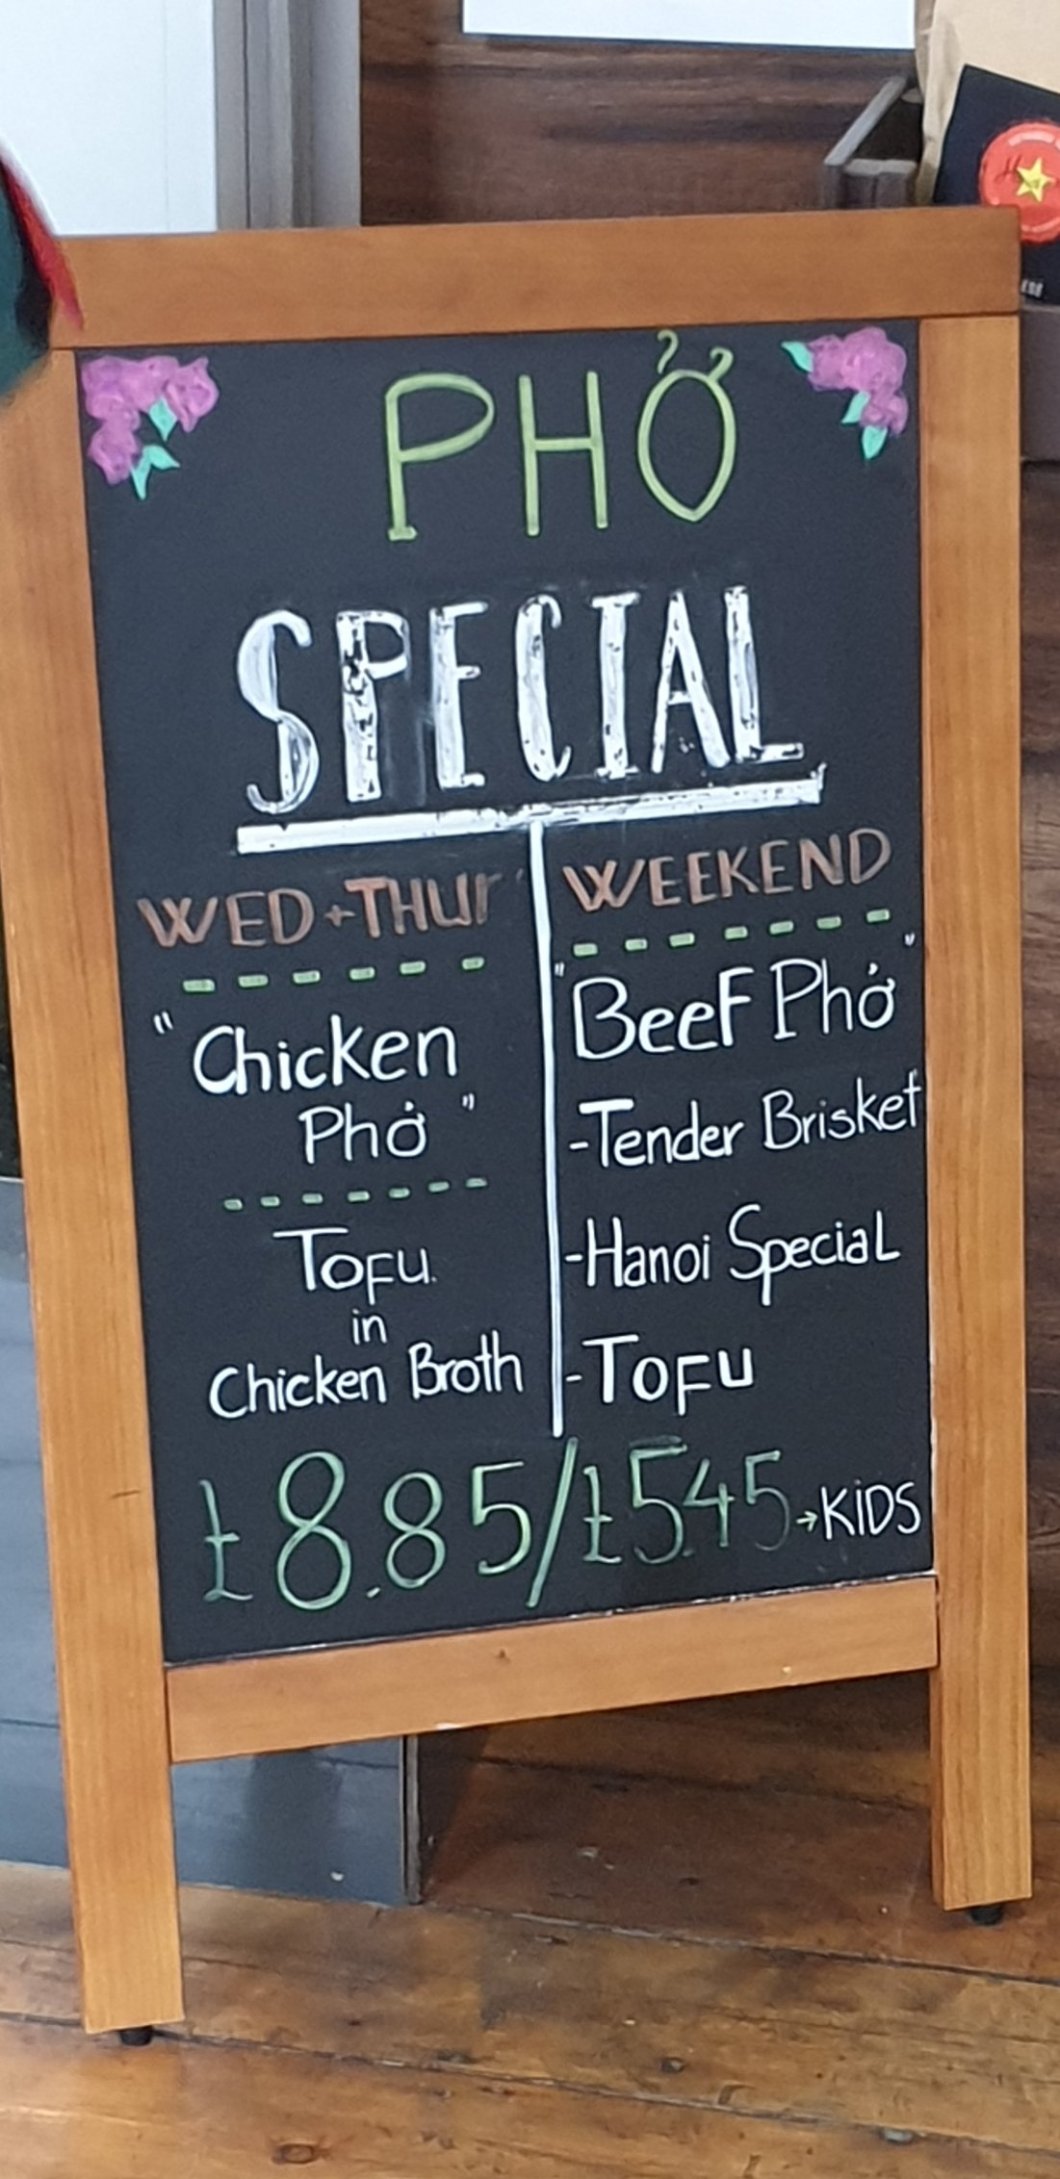 PHỞ
SPECIAL
WED + THUR
"Chicken
Phở"
TOFU
in
Chicken Broth
WEEKEND
"Beef Phở"
-Tender Brisket
-Hanoi Special
-TOFU
£8.85/£5.45→KiDS